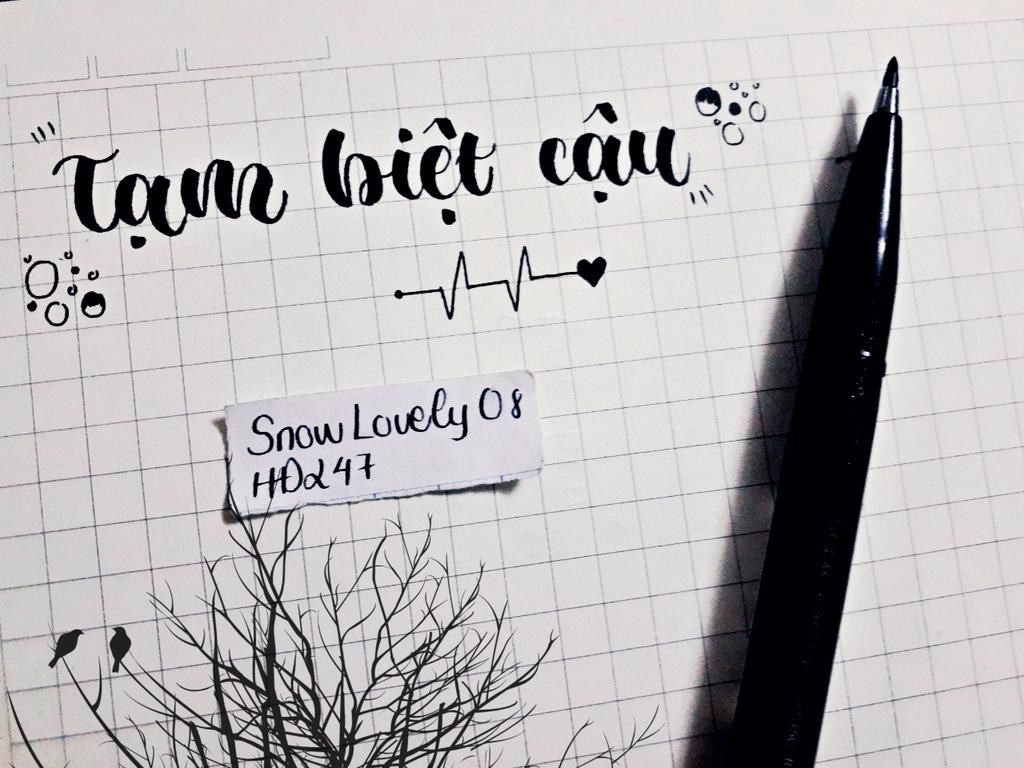 "Tạm biệt cậu"
Snow Lovely 08
HĐ247